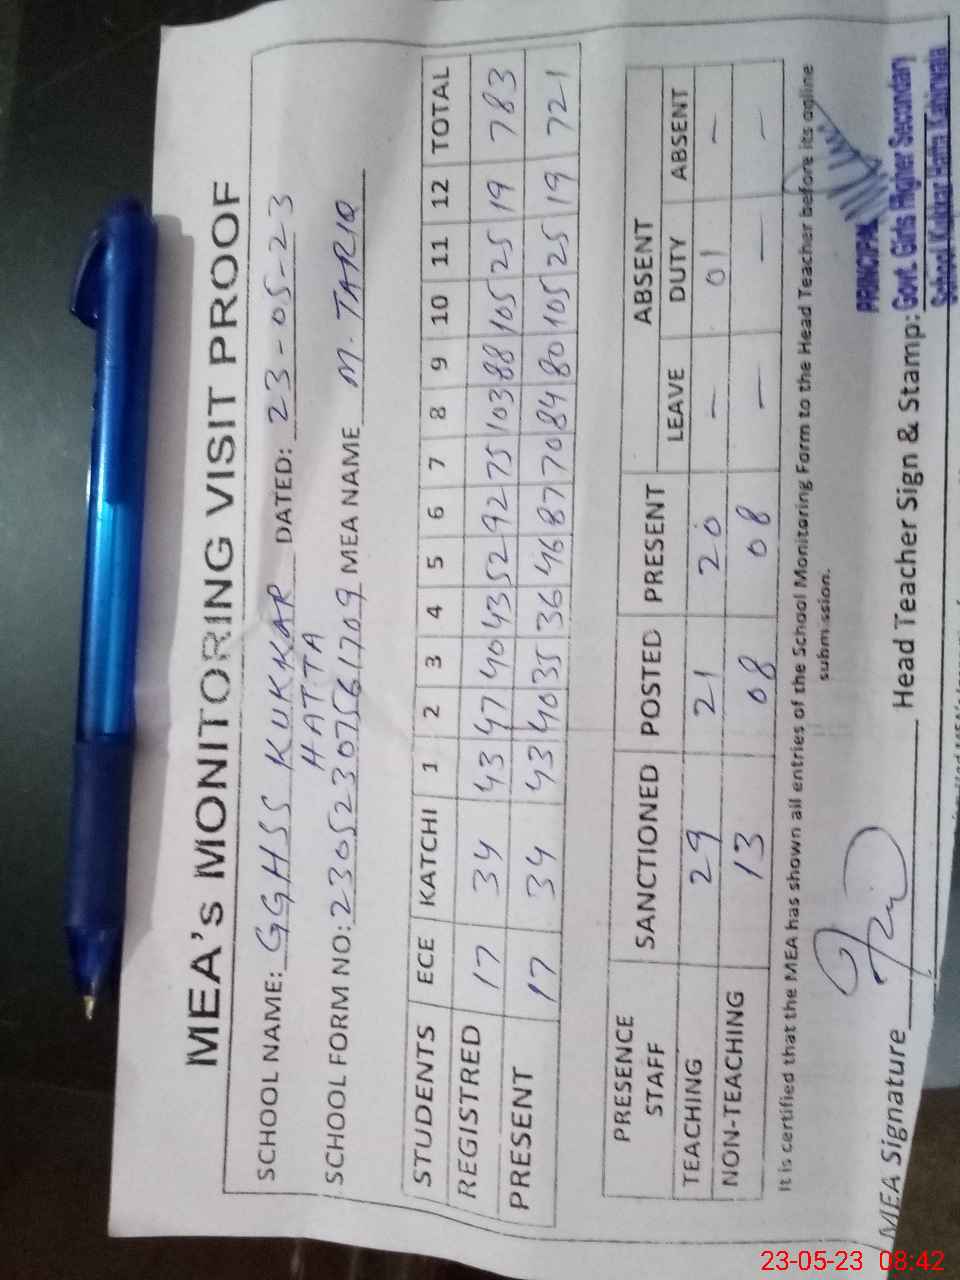 MEA's MONITORING VISIT PROOF
SCHOOL NAME: GGHSS KUKKAR HATTA DATED: 23-05-23
SCHOOL FORM NO: 23052307561709 MEA NAME M. TARIQ
STUDENTS ECE KATCHI 1 2 3 4 5 6 7 8 9 10 11 12 TOTAL
REGISTRED 17 34 43 47 40 43 52 92 75 103 88 105 25 19 783
PRESENT 17 34 43 40 35 36 46 87 70 84 80 105 25 19 721
PRESENCE STAFF SANCTIONED POSTED PRESENT ABSENT
LEAVE DUTY ABSENT
TEACHING 29 21 20 — 01 —
NON-TEACHING 13 08 08 — — —
It is certified that the MEA has shown all entries of the School Monitoring Form to the Head Teacher before its online
submission.
MEA Signature Head Teacher Sign & Stamp:
PRINCIPAL
Govt. Girls Higher Secondary
School Kukkar Hatta
23-05-23 08:42